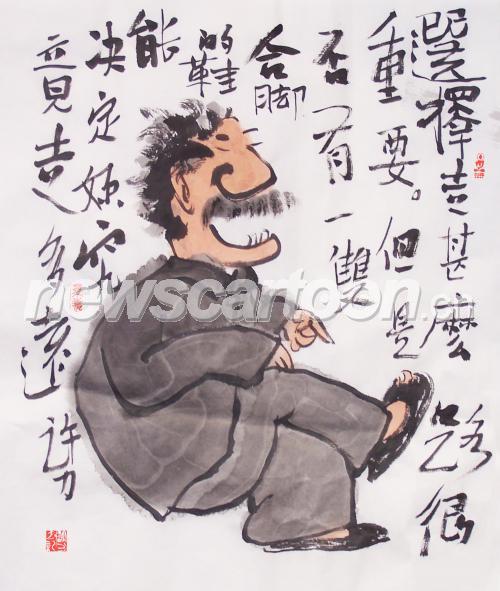 選擇走甚麼
路很
重要。但是
否有一雙
合脚
的鞋
能
决定妳究
竟走多遠
许力
newscartoon.cn